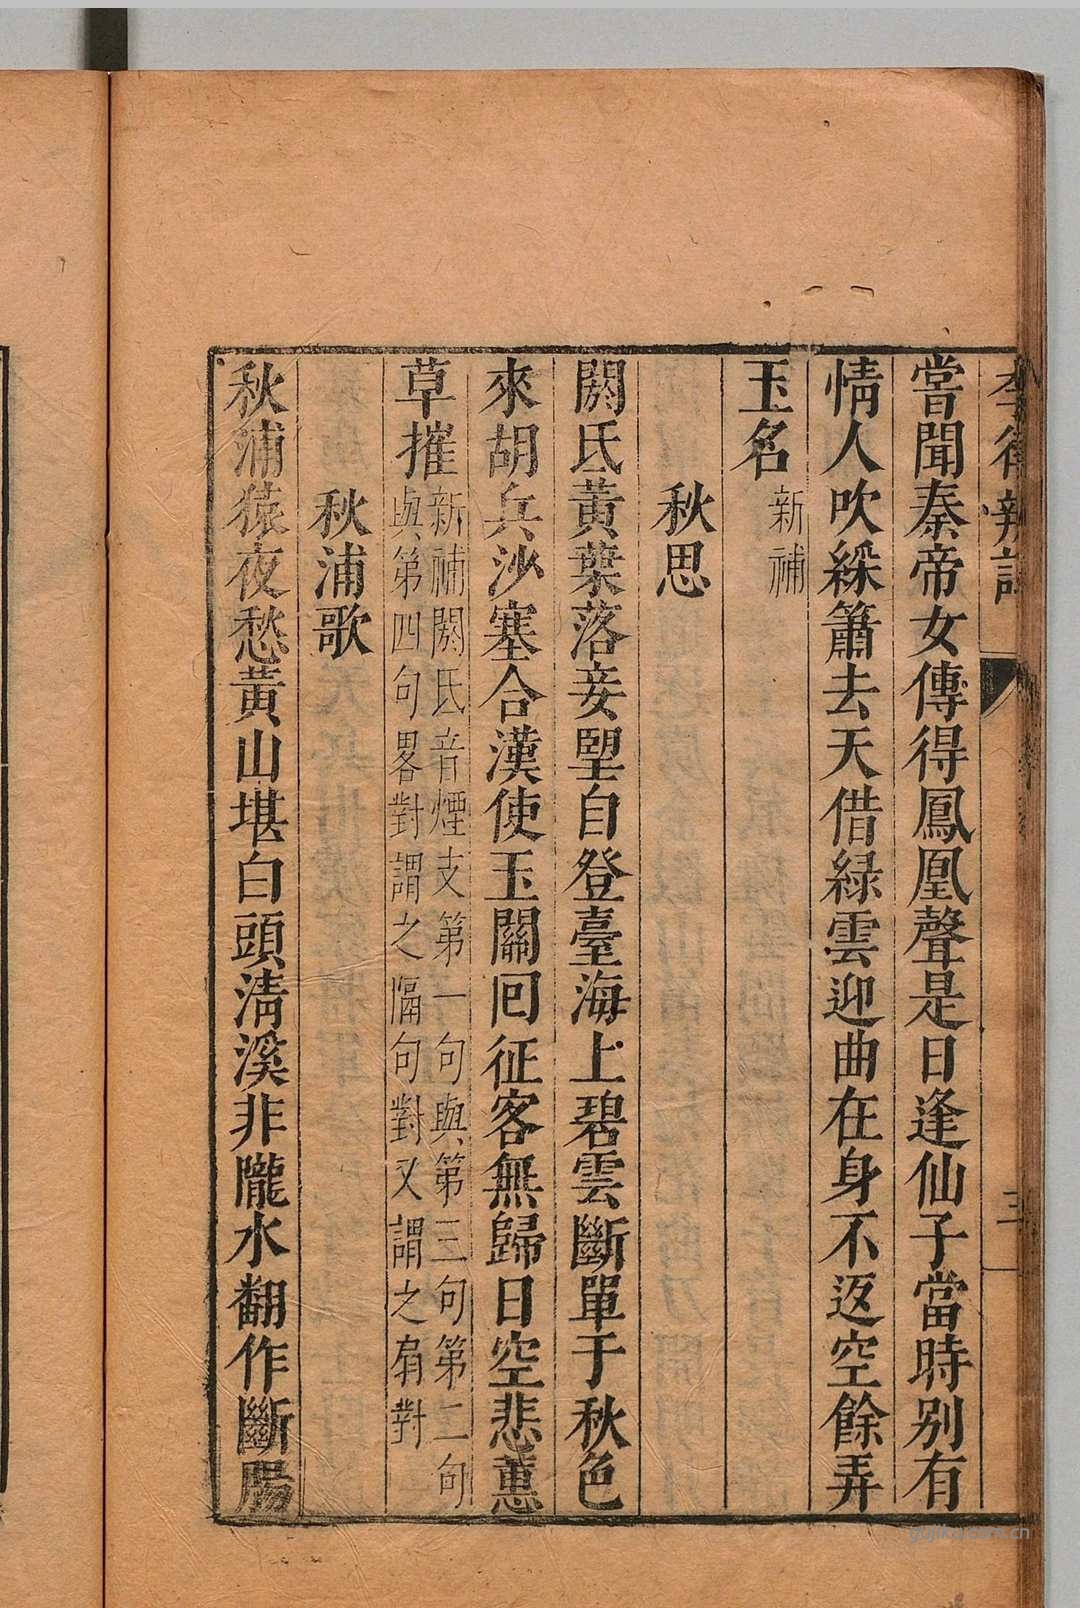 李律辨註
三
嘗聞秦帝女傳得鳳凰聲是日逢仙子當時別有
情人吹綵簫去天借緑雲迎曲在身不返空餘弄
玉名新補
秋思
閼氏黃葉落妾朢自登臺海上碧雲斷單于秋色
來胡兵沙塞合漢使玉關囘征客無歸日空悲蕙
草摧新補閼氏音煙支第一句與第三句第二句
與第四句畧對謂之隔句對又謂之扇對
秋浦歌
秋浦猿夜愁黃山堪白頭清溪非隴水翻作斷腸
gujiku.com.cn